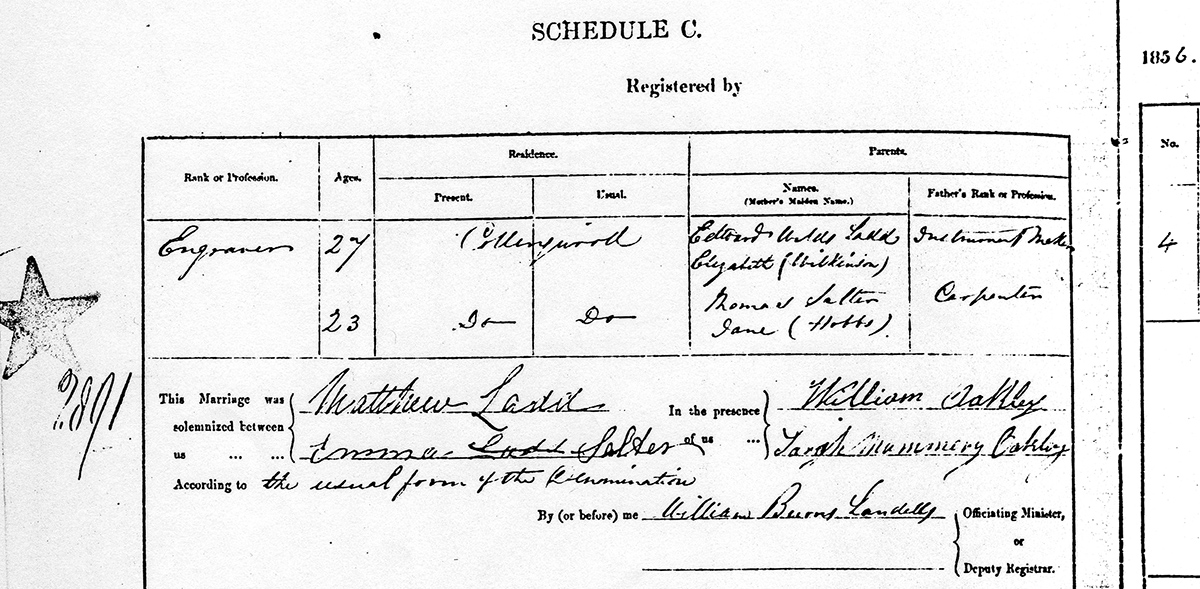 SCHEDULE C.
1856.
Registered by
Rank or Profession.
Ages.
Residence.
Present.
Usual.
Parents.
Names.
(Mother's Maiden Name.)
Father's Rank or Profession.
No.
Engraver 27 Collingwood Edward Ladd Instrument Maker
Elizabeth (Wilkinson)
4
23 Do Do Thomas Salter Carpenter
Jane (Hobbs).
2891
This Marriage was solemnized between us ... ...
Matthew Ladd
Emma Ladd Salter
In the presence of us ...
William Oakley
Sarah Mummery Oakley
According to the usual form of the Denomination
By (or before) me William Burns Landells
Officiating Minister,
or
Deputy Registrar.